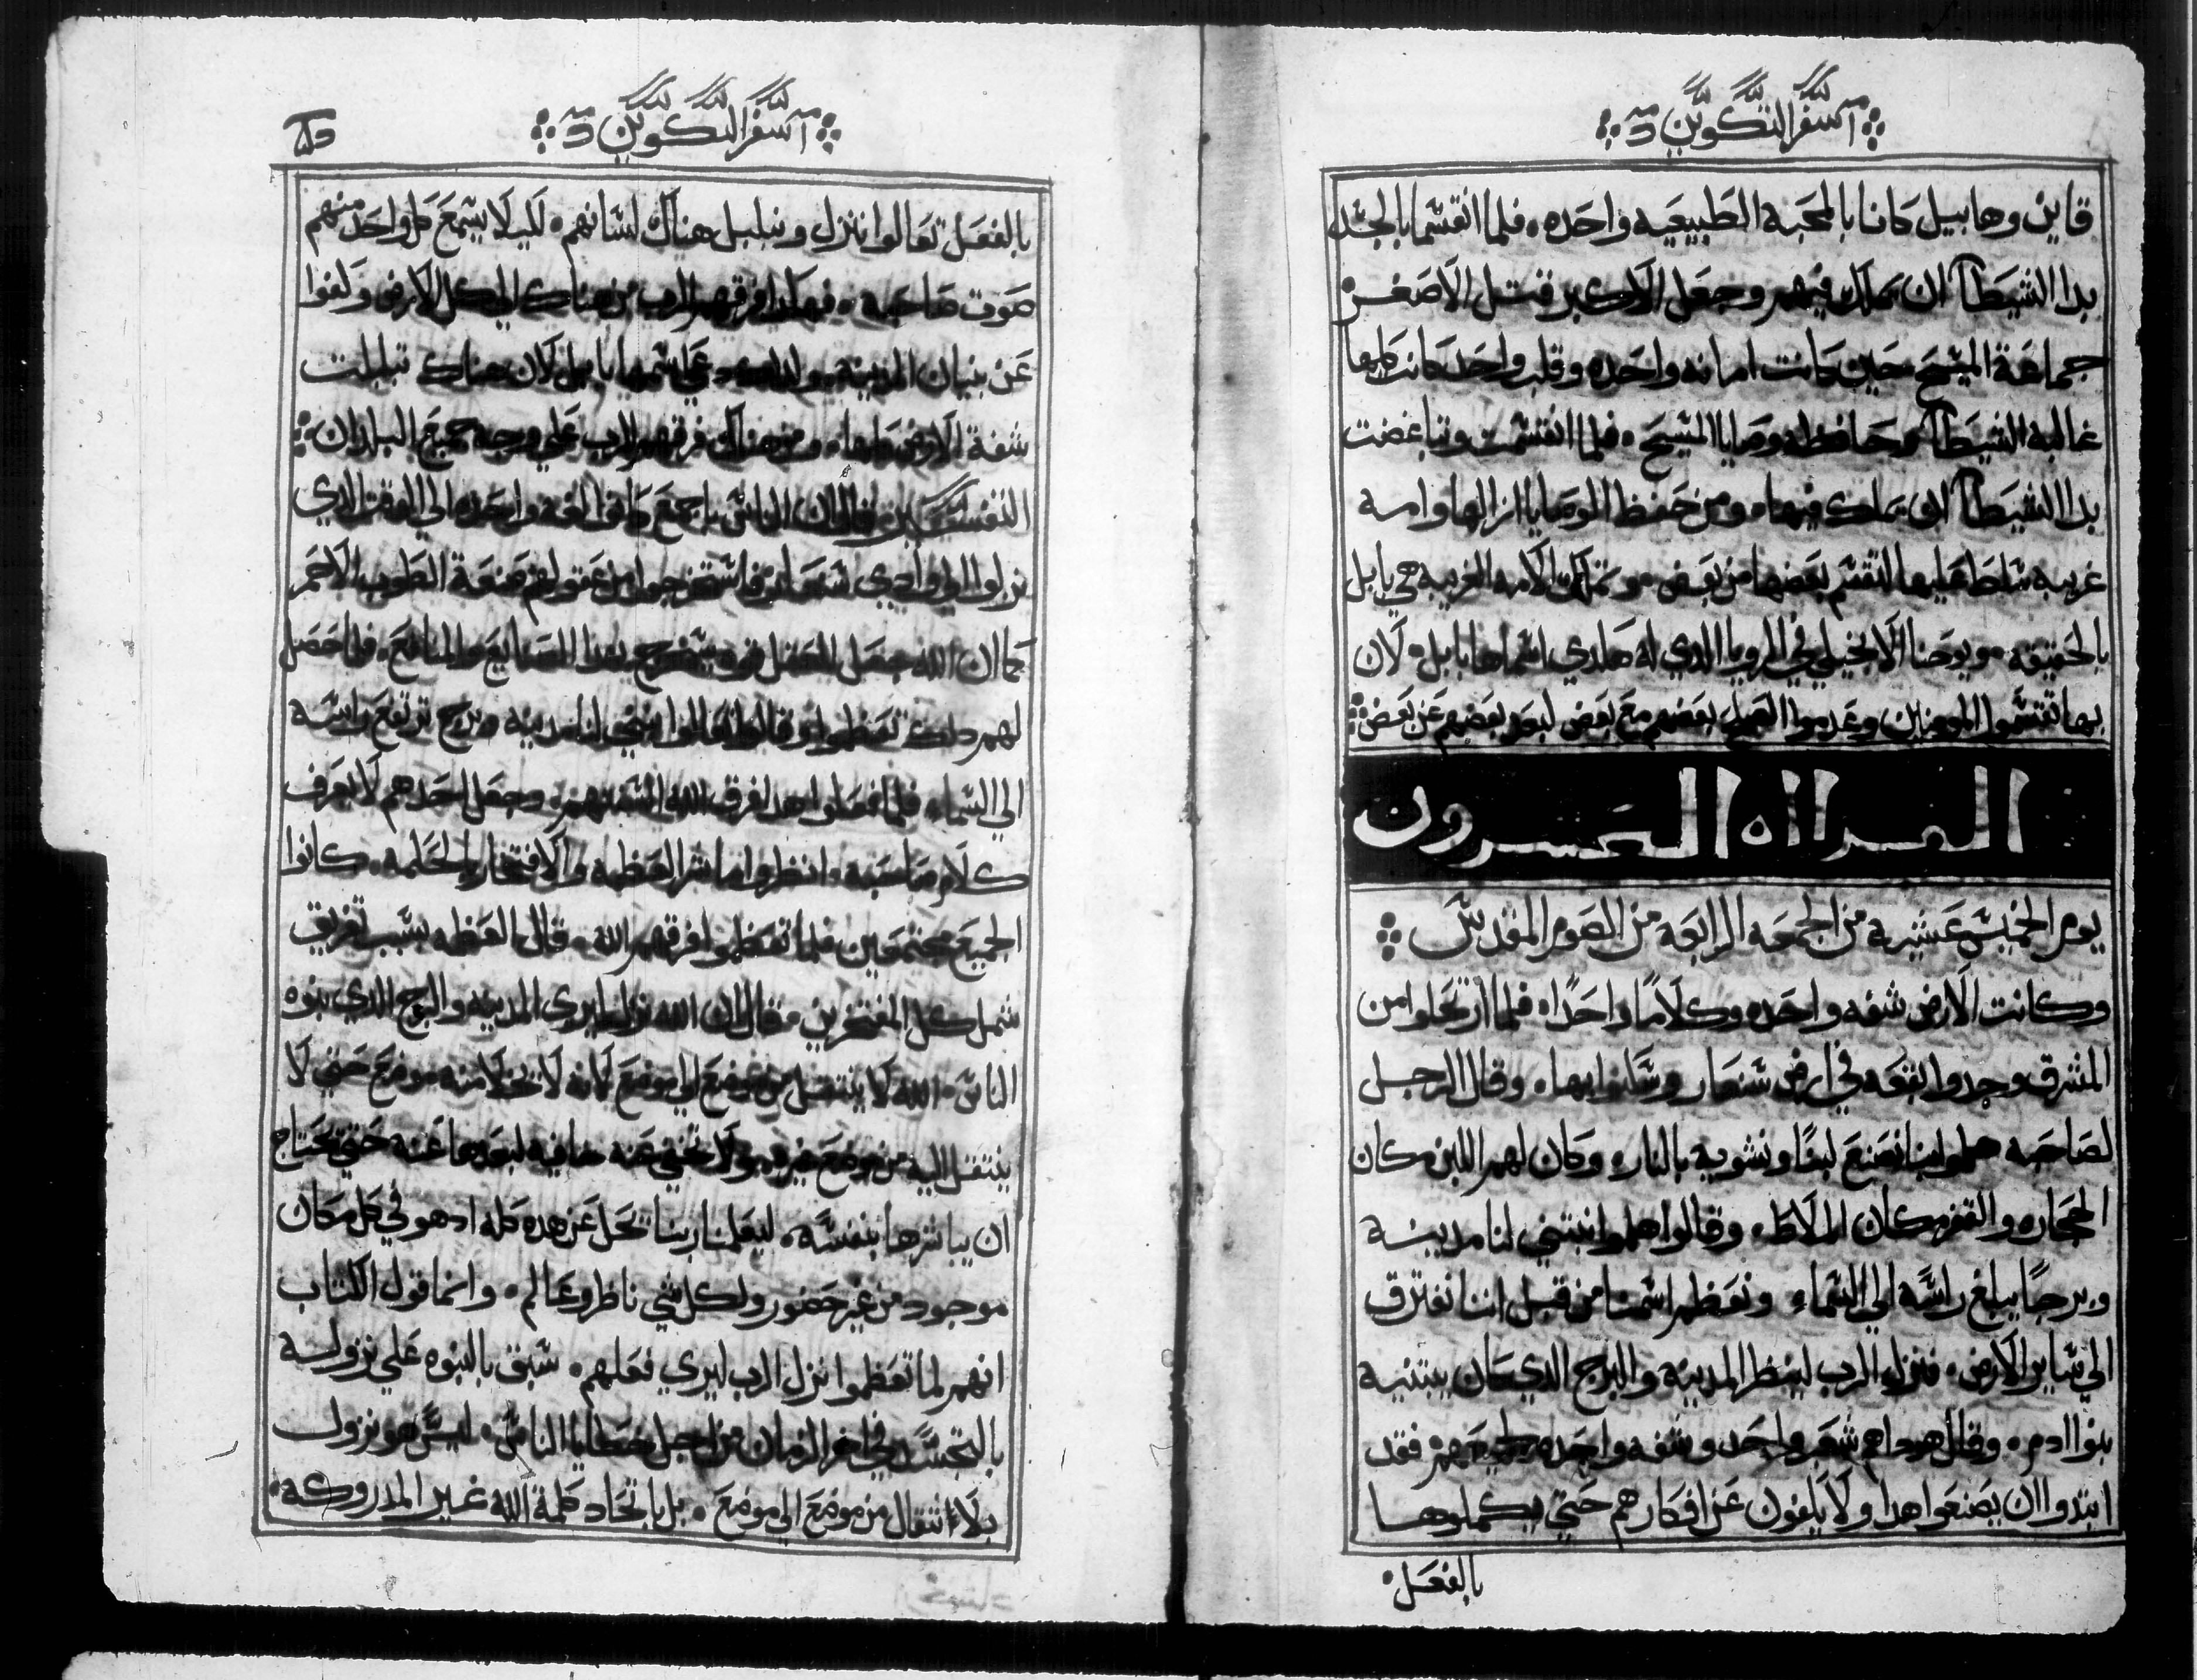 سفر التكوين
قاين وهابيل كانا بالمحبه الطبيعيه واحده، فلما انقسما بالجسد
بدا الشيطان ان يملك فيهم وجعل الاكبر قتل الاصغر
جماعة المسيح حين كانت امانه واحده وقلب واحد كانت كلها
غالبة الشيطان وحافظه وصايا المسيح، فلما انقسمت وتباغضت
بدا الشيطان ان يملك فيها، ومن حفظ الوصايا ازالها وامه
غريبه سلط عليها لتقسم بعضها من بعض، وتلك الامه الغريبه هي بابل
بالحقيقه، ويوحنا الانجيلي في الرويا الذي له هكدي اسماها بابل، لان
بها تقسموا المومنين وعدموا العمل بعضهم مع بعض لبعد بعضهم عن بعض
القرااه العشرون
يوم الخميس عشيه من الجمعه الرابعه من الصوم المقدس
وكانت الارض شفه واحده وكلامًا واحدًا، فلما ارتحلوا من
المشرق وجدوا بقعه في ارض شنعار وسكنوا بها، وقال الرجل
لصاحبه هلموا بنا نصنع لبنًا ونشويه بالنار، وكان لهم اللبن مكان
الحجاره والقفر مكان الملاط، وقالوا هلموا نبتني لنا مدينه
وبرجًا يبلغ راسه الي السماء، ونعظم اسمنا من قبل اننا نفترق
الي ساير الارض، فنزل الرب لينظر المدينه والبرج الدي كان يبتنيه
بنوا ادم، وقال هودا هم شعب واحد وشفه واحده لجميعهم فقد
ابتدوا ان يصنعوا هدا ولا يلغون عن افكارهم حتي يكملوها
بالفعل
سفر التكوين
بالفعل تعالوا ننزل ونبلبل هناك لسانهم، لكيلا يسمع كل واحد منهم
صوت صاحبه، فهكدا فرقهم الرب من هناك الي كل الارض وكفوا
عن بنيان المدينه دعي اسمها بابل لان هناك تبلبلت
شفة الارض كلها، ومن هناك فرقهم الرب علي وجه جميع البلدان
التفسير قال ان الناس باجمع كانوا لغه واحده الي الوقت الدي
نزلوا الي وادي شنعار فاستخرجوا من عقولهم صنعة الطوب الاحمر
كما ان الله جعل العقل قوه يستخرج بها الصنايع والمنافع، فلما حصل
لهم دلك تعظموا وقالوا تعالوا نبتني لنا مدينه وبرج ترتفع راسه
الي السماء، فلما فعلوا هدا فرق الله السنتهم، وجعل احدهم لا يعرف
كلام صاحبه، انظروا ما شر العظمه والافتخار والحلمه، كانوا
الجميع مجتمعين فلما تعظموا فرقهم الله، قال العظمه بسبب تفريق
شمل كل المفتخرين، فقال ان الله نزل ليري المدينه والبرج الدي بنوه
الناس، الله لا ينتقل من موضع الي موضع لانه لا يخلا منه موضع حتي لا
ينتقل اليه من موضع غيره، ولا تخفي عنه خافيه لبعدها عنه حتي يحتاج
ان يباشرها بنفسه، ليعلمنا ربنا تحل عن هده كله ادهو في كل مكان
موجود من غير حضور ولكل شي ناظر وعالم، وانما قول الكتاب
انهم لما تعظموا نزل الرب ليري فعلهم، سبق بالنبوه علي نزوله
بالتجسد في اخر الزمان من اجل خطايا الناس، ليس هو نزول
بلا انتقال من موضع الي موضع، بل باتحاد كلمة الله غير المدروكه